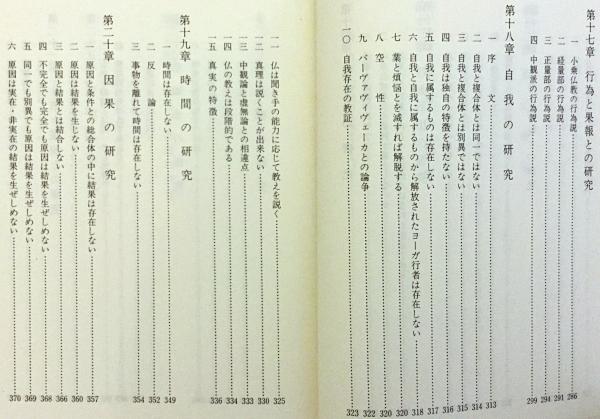 第十七章 行為と果報との研究
一 小乗仏教の行為説 286
二 経量部の行為説 291
三 正量部の行為説 294
四 中観派の行為説 299
第十八章 自我の研究
一 序文 313
二 自我と複合体とは同一ではない 314
三 自我と複合体とは別異ではない 315
四 自我は独自の特徴を持たない 316
五 自我に属するものは存在しない 317
六 自我と自我に属するものから解放されたヨーガ行者は存在しない 318
七 業と煩悩とを滅すれば解脱する 320
八 空性 320
九 バーヴァヴィヴェーカとの論争 322
一〇 自我存在の教証 323
一一 仏は聞き手の能力に応じて教えを説く 325
一二 真理は説くことが出来ない 330
一三 中観論と虚無論との相違点 333
一四 仏の教えは段階的である 334
一五 真実の特徴 336
第十九章 時間の研究
一 時間は存在しない 349
二 反論 352
三 事物を離れて時間は存在しない 354
第二十章 因果の研究
一 原因と条件との総合体の中に結果は存在しない 357
二 原因は結果を生じない 360
三 原因と結果とは結合しない 366
四 不完全でも完全でも原因は結果を生ぜしめない 368
五 同一でも別異でも原因は結果を生ぜしめない 369
六 原因は実在・非実在の結果を生ぜしめない 370